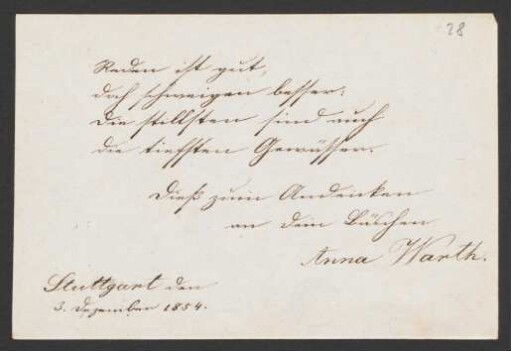 28
Reden ist gut,
doch schweigen besser:
Die stillsten sind auch
die tiefsten Gewässer.
Dieß zum Andenken
an dein Bäschen
Anna Warth.
Stuttgart den
3. Dezember 1854.